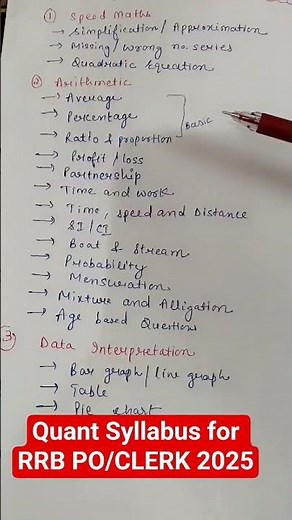 ① Speed Maths
→ Simplification / Approximation
→ Missing / Wrong no. series
→ Quadratic Equation
② Arithmetic
→ Average
→ Percentage
→ Ratio & proportion
Basic
→ Profit / loss
→ Partnership
→ Time and work
→ Time, speed and Distance
→ SI / CI
→ Boat & Stream
→ Probability
→ Mensuration
→ Mixture and Alligation
→ Age based Question
③ Data Interpretation
→ Bar graph / line graph
→ Table
→ Pie chart
Quant Syllabus for
RRB PO/CLERK 2025